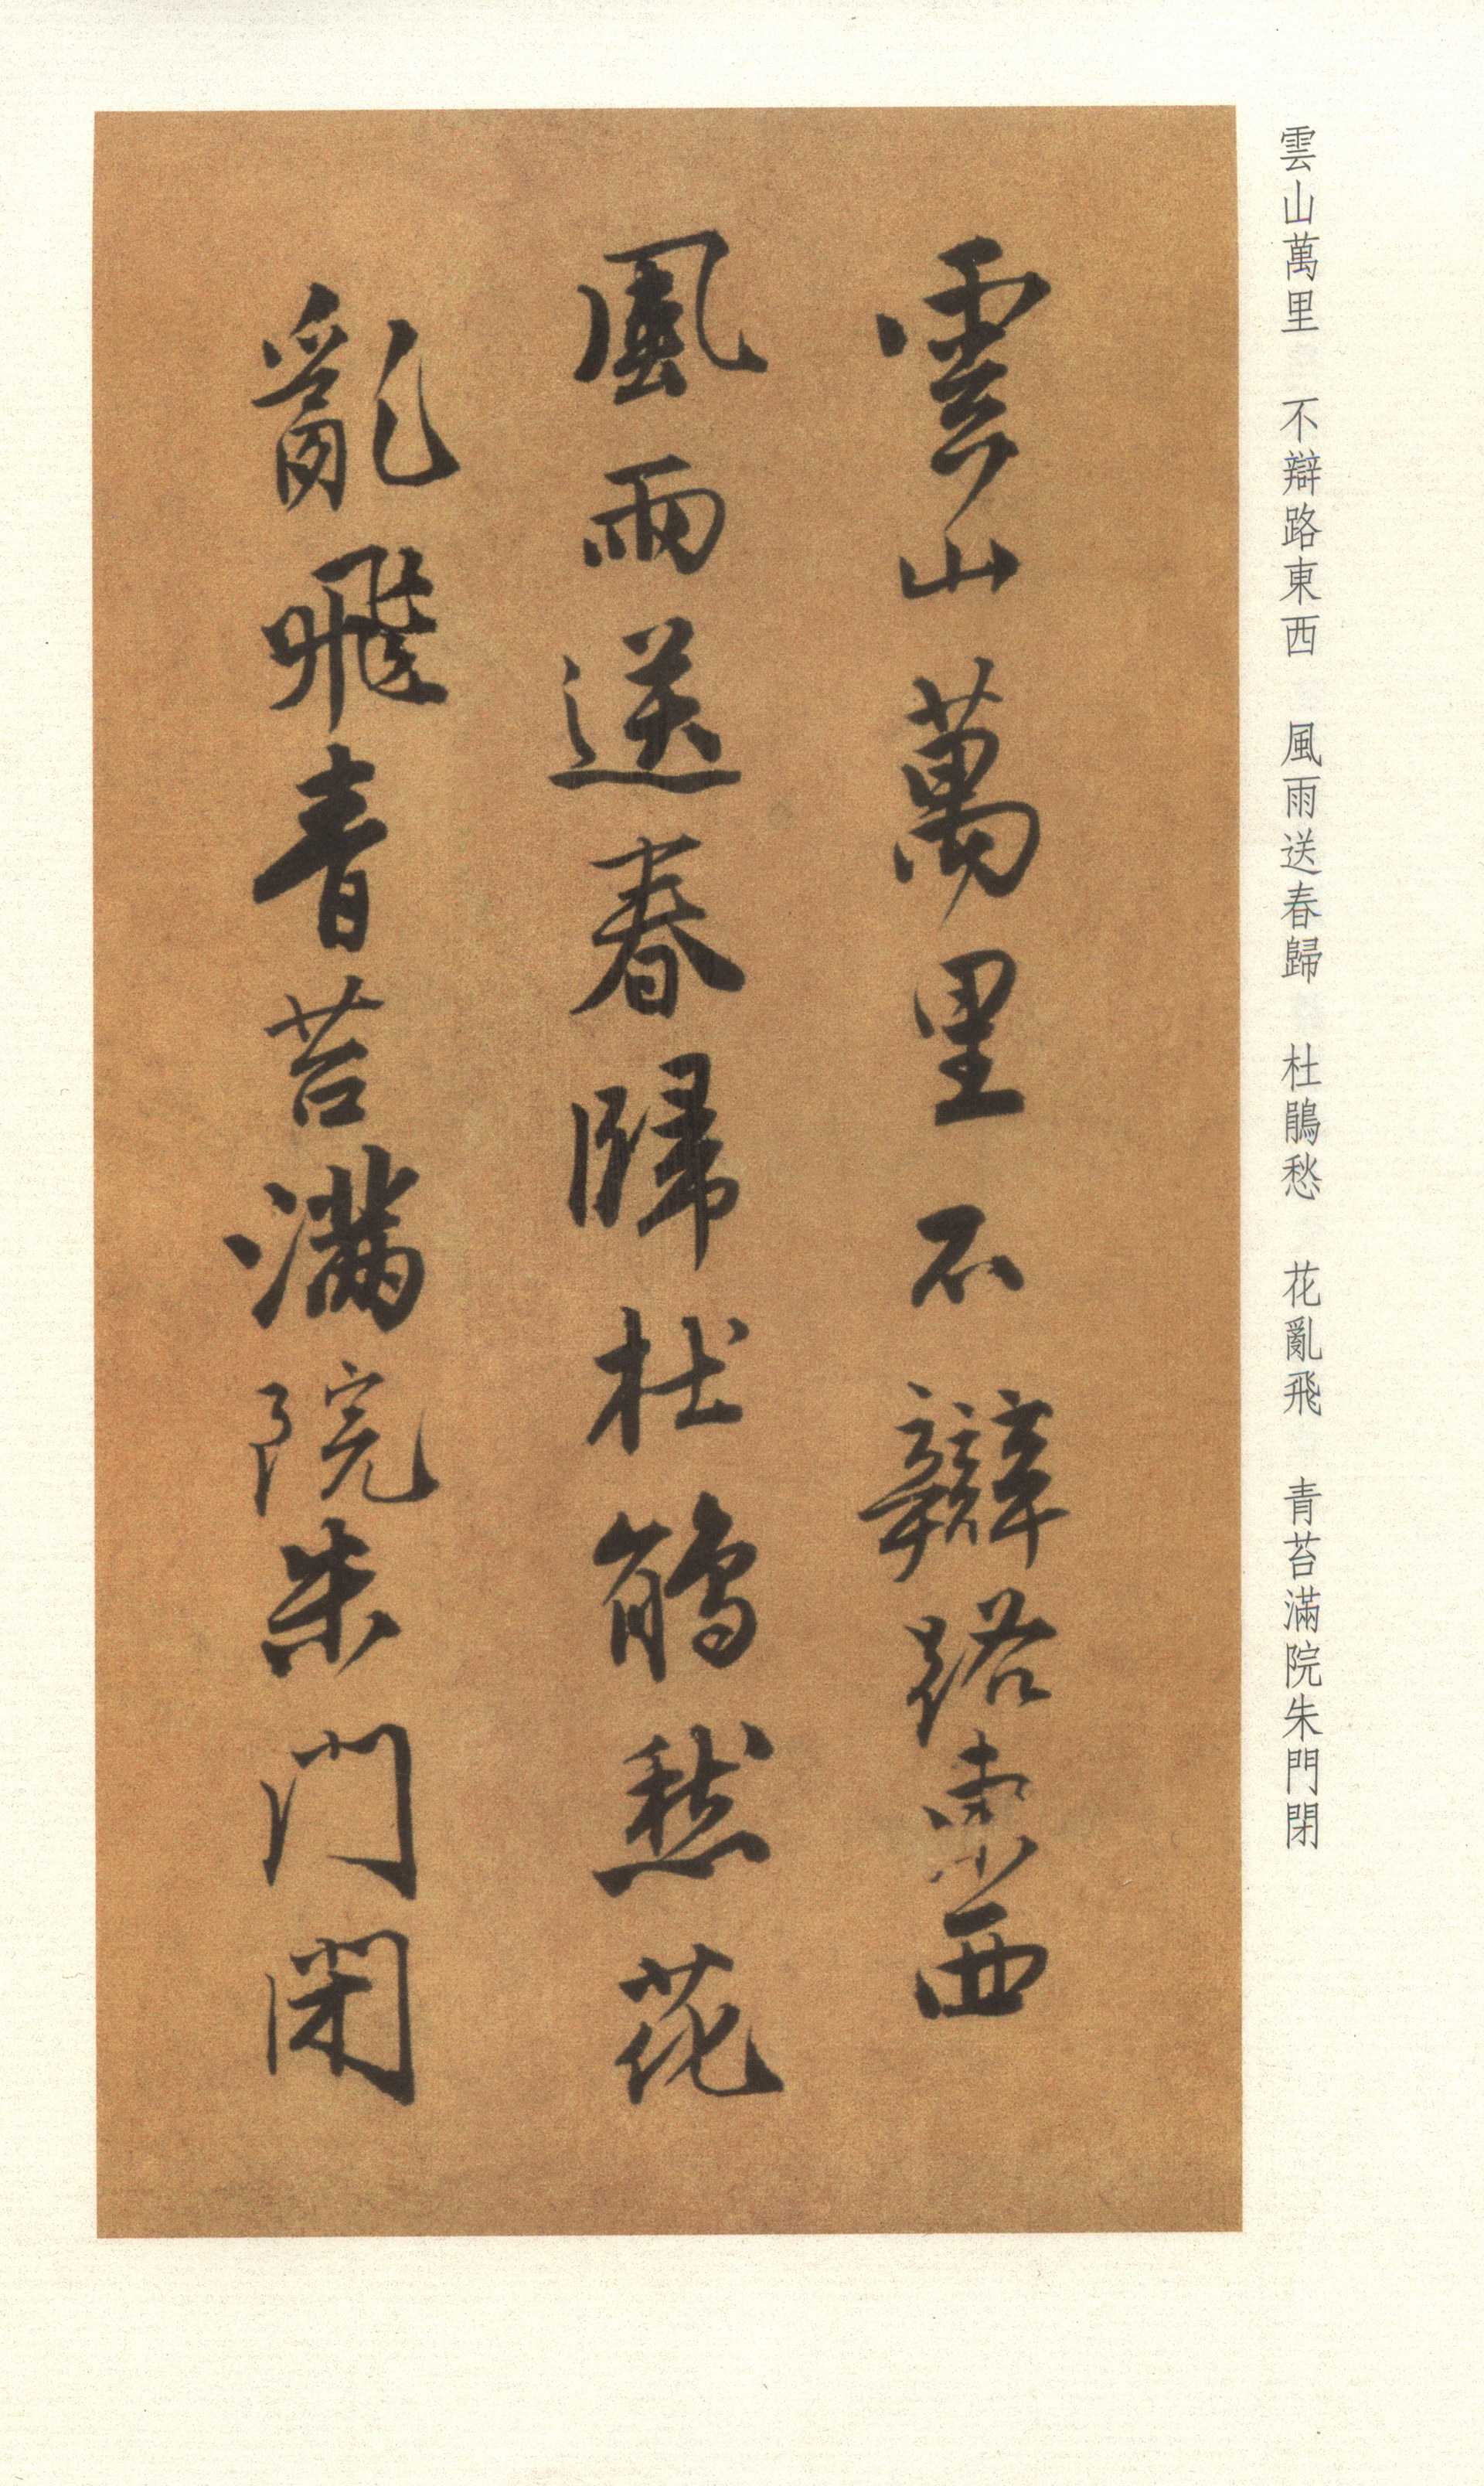 雲山萬里　不辯路東西　風雨送春歸　杜鵑愁　花亂飛　青苔滿院朱門閉
雲山萬里不辯路東西
風雨送春歸杜鵑愁花
亂飛青苔滿院朱门闭